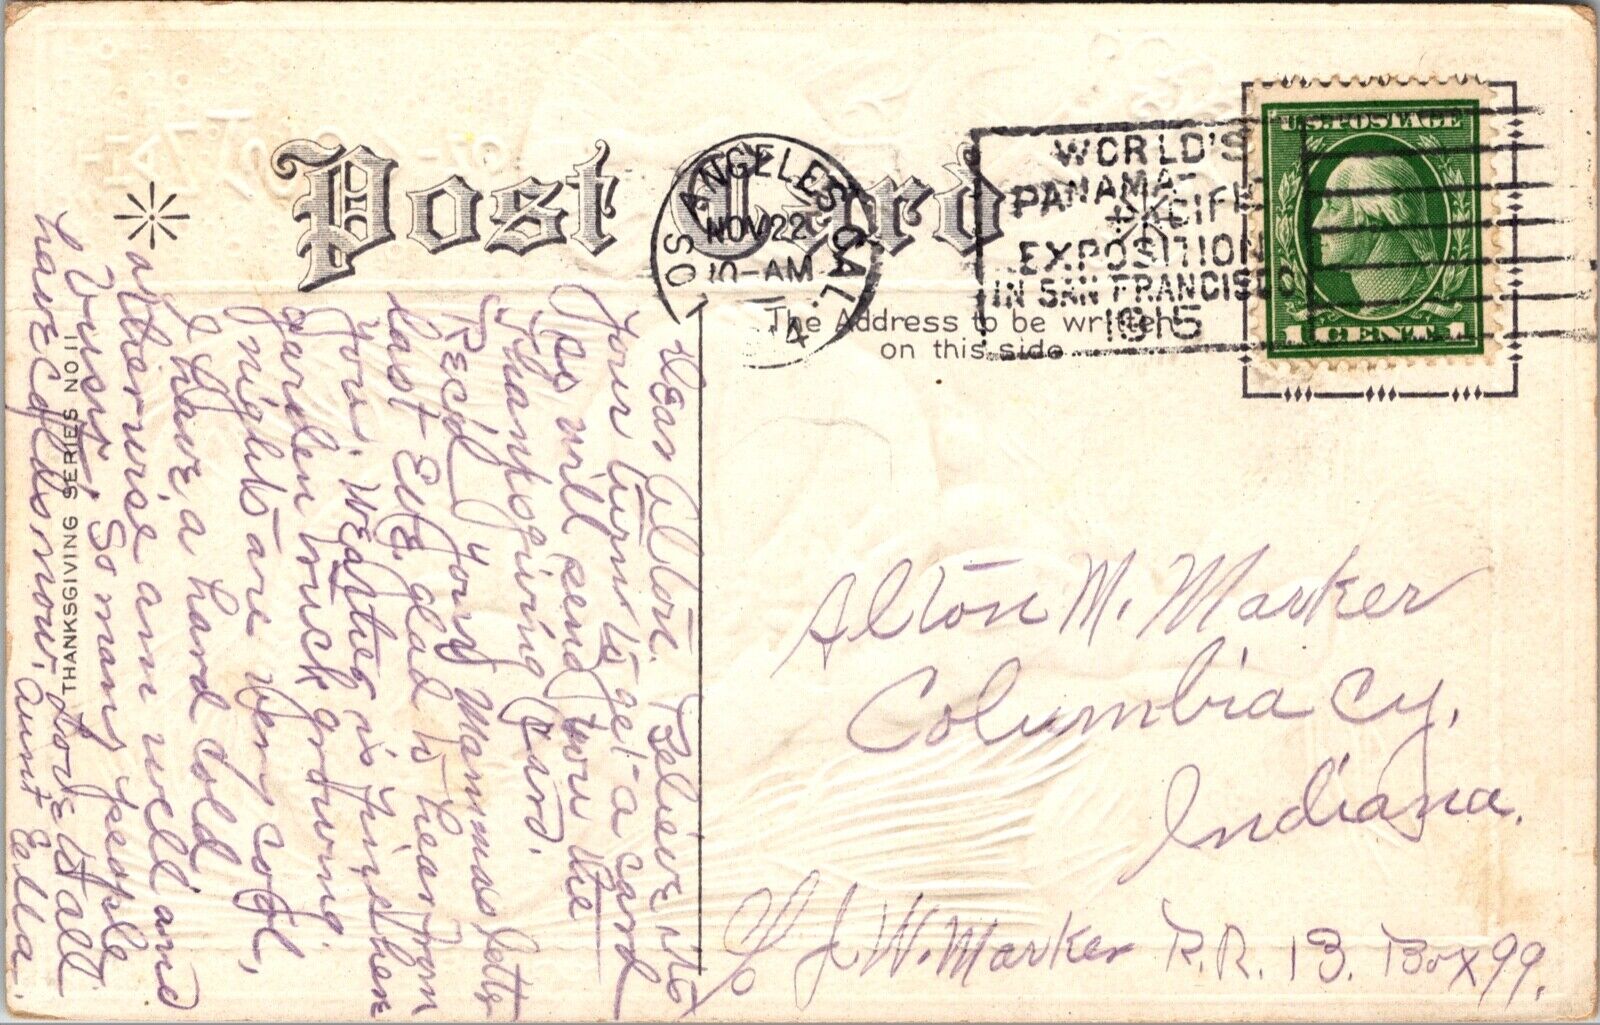 Post Card
LOS ANGELES, CAL.
NOV 22
10-AM
WORLD'S
PANAMA-
PACIFIC
EXPOSITION
IN SAN FRANCISCO
1915
U.S. POSTAGE
1 CENT 1
The Address to be written
on this side
THANKSGIVING SERIES NO. 11
Dear Alton. Believe its
Your turn to get a card
so will send you the
Thanksgiving Card.
Rec'd your Mammas letter
last Eve. glad to hear from
you. Weather is fine here
garden truck growing.
nights are very cool,
I have a hard cold
otherwise am well and
busy. So many people
have colds now. Love to all
Aunt Ella.
Alton M. Marker
Columbia Cy,
Indiana.
c/o J. W. Marker R.R. 13. Box 99.